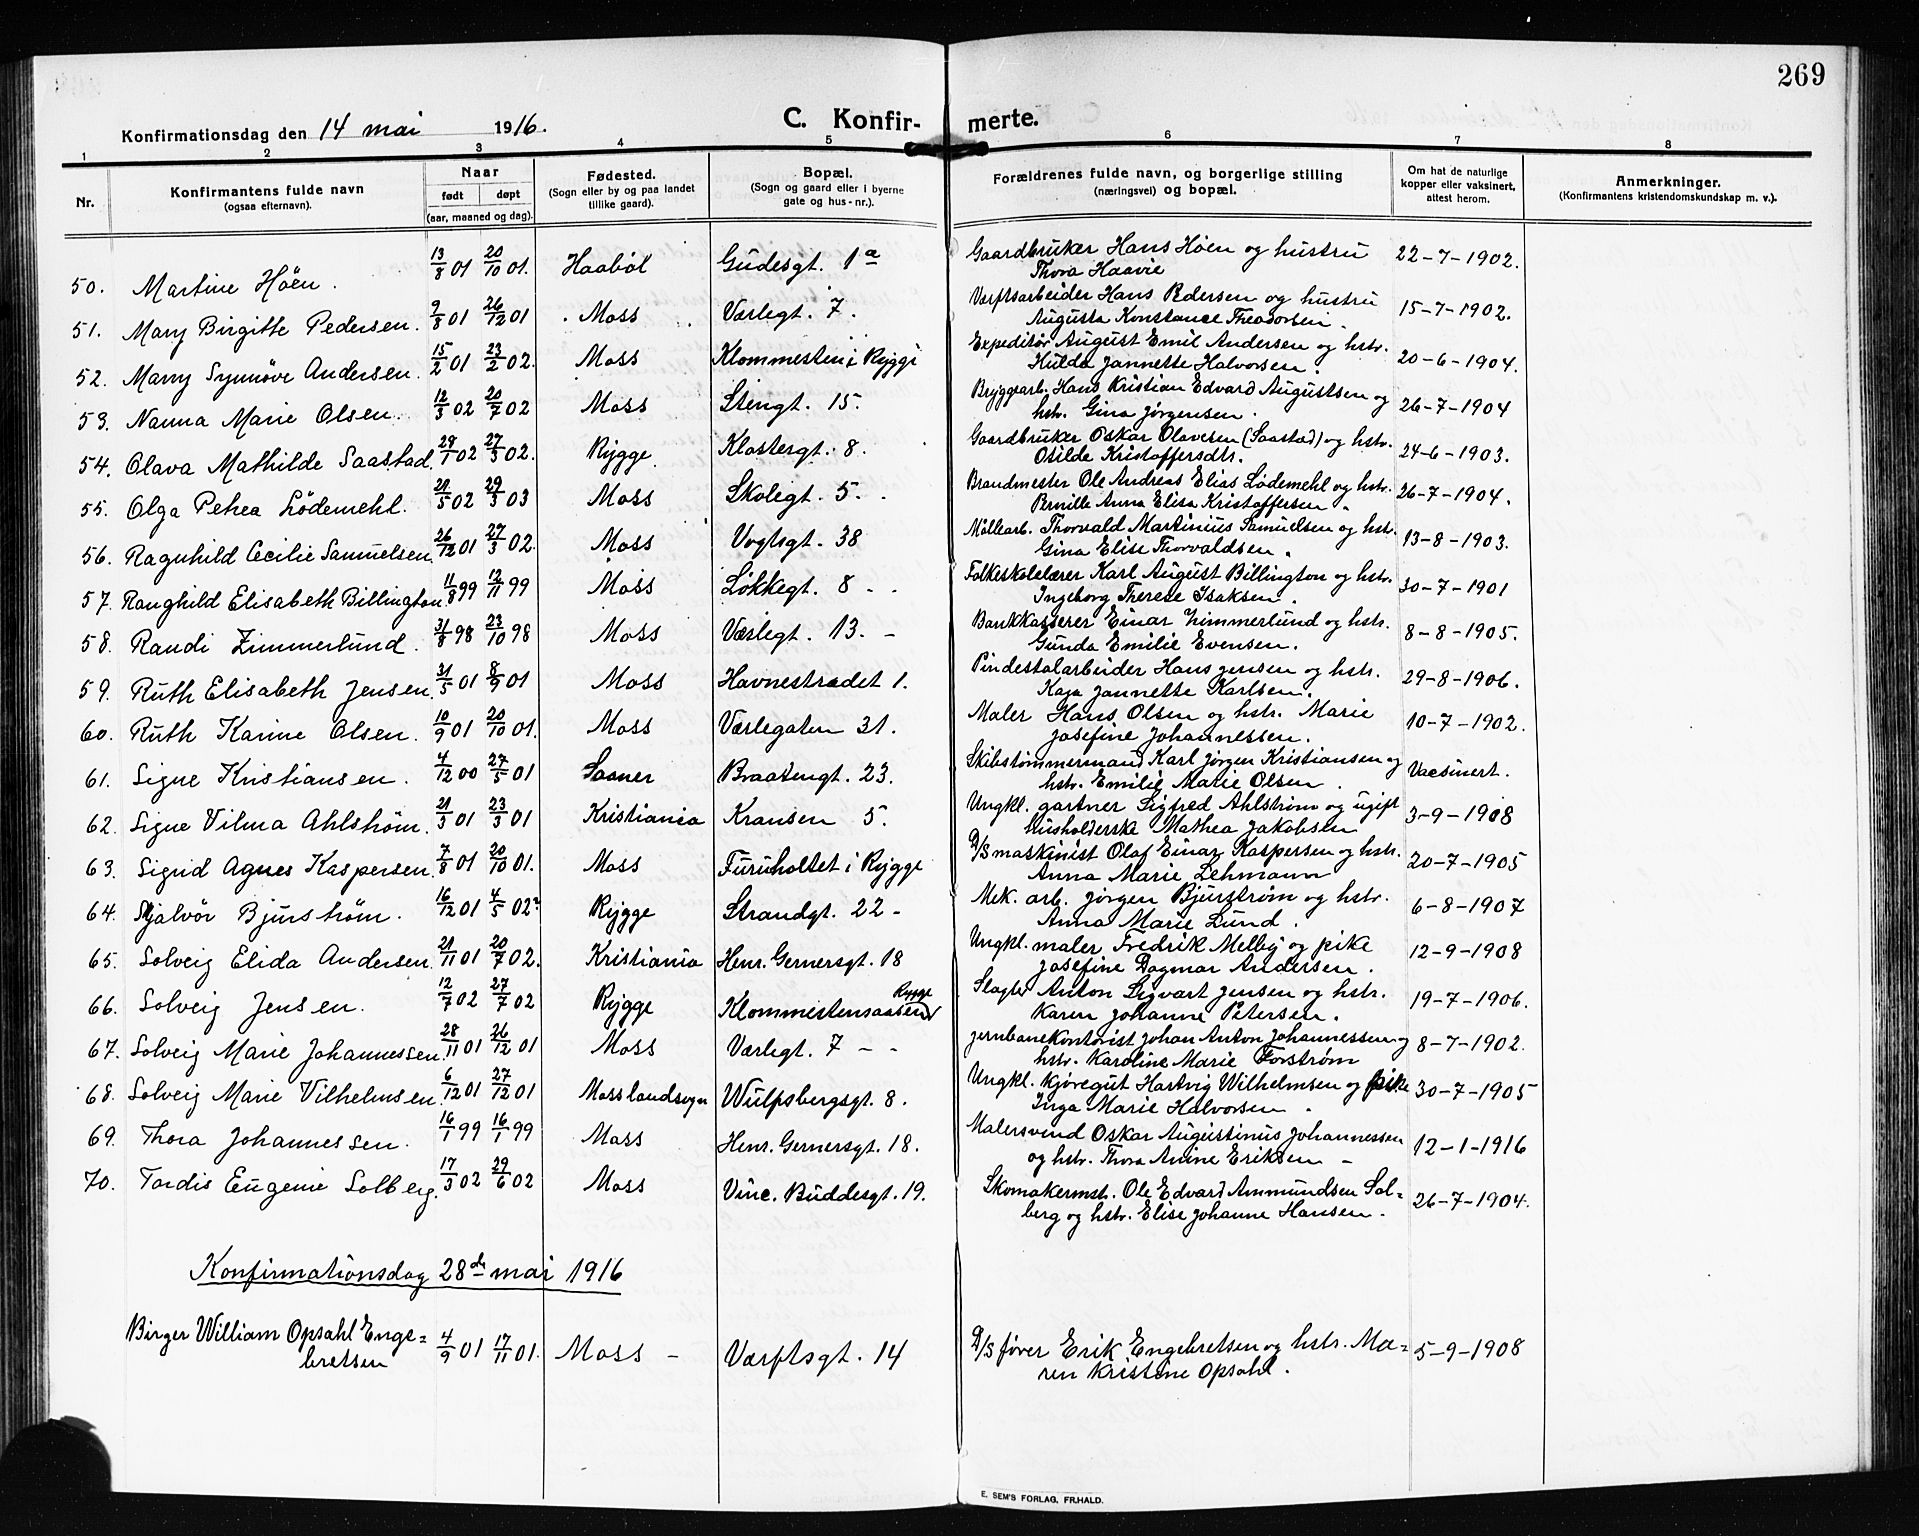 269
Konfirmationsdag den 14 mai 1916.
C. Konfir- merte.
1 2 3 4 5 6 7 8
Nr.
Konfirmantens fulde navn
(ogsaa efternavn).
Naar
født døpt
(aar, maaned og dag).
Fødested.
(Sogn eller by og paa landet
tillike gaard).
Bopæl.
(Sogn og gaard eller i byerne
gate og hus-nr.).
Forældrenes fulde navn, og borgerlige stilling
(næringsvei) og bopæl.
Om hat de naturlige
kopper eller vaksinert,
attest herom.
Anmerkninger.
(Konfirmantens kristendomskundskap m. v.).
50. Martine Höen. 13/8 01 20/10 01. Haaböl Gudesgt. 1a Gaardbruker Hans Höen og hustru 22-7-1902.
Thora Haavie
51. Mary Birgitte Pedersen. 9/8 01 26/12 01 Moss Værlegt. 7. Værftsarbeider Hans Pedersen og hustru 15-7-1902.
Augusta Konstance Theodorsen.
52. Marry Synnöve Andersen. 15/2 01 23/2 02. Moss Klommesten i Rygge Expeditör August Emil Andersen og hstr. 20-6-1904.
Hulda Jannette Halvorsen.
53. Nanna Marie Olsen. 12/3 02 20/7 02 Moss Stengt. 15. Bryggearb. Hans Kristian Edvard Augustsen og 26-7-1904
hstr. Gina Jörgensen.
54. Olava Mathilde Saastad. 29/1 02 27/3 02. Rygge Klostergt. 8. Gaardbruker Oskar Olavesen (Saastad) og hstr. 24-6-1903.
Otilde Kristoffersdtr.
55. Olga Petrea Lödemehl. 21/5 02 29/3 03 Moss Skolegt. 5. Brandmester Ole Andreas Elias Lödemehl og hstr. 26-7-1904.
Pernille Anna Elisa Kristoffersen.
56. Ragnhild Cecilie Samuelsen 26/12 01 27/3 02. Moss Vogtsgt. 38 Möllearb. Thorvald Martinius Samuelsen og hstr. 13-8-1903.
Gina Elise Thorvaldsen.
57. Ranghild Elisabeth Billington 11/8 99 12/11 99 Moss Lökkegt. 8 - - Folkeskolelærer Karl August Billington og hstr. 30-7-1901
Ingeborg Therese Isaksen.
58. Randi Zimmerlund. 31/8 98 23/10 98 Moss Værlegt. 13. - Bankkasserer Einar Zimmerlund og hstr. 8-8-1905.
Gunda Emilie Evensen.
59. Ruth Elisabeth Jensen. 31/5 01 8/9 01 Moss Havnestrædet 1. Pindestalarbeider Hans Jensen og hstr. 29-8-1906.
Kaja Jannette Karlsen.
60. Ruth Karine Olsen. 10/9 01 20/10 01. Moss Værlegaten 31. Maler Hans Olsen og hstr. Marie 10-7-1902.
Josefine Johannessen.
61. Signe Kristiansen. 4/12 00 27/5 01 Saaner Braatengt. 23. Skibstömmermand Karl Jörgen Kristiansen og Vacsinert.
hstr. Emilie Marie Olsen.
62. Signe Vilma Ahlström. 21/3 01 23/3 01 Kristiania Kransen 5. Ungkl. gartner Sigfred Ahlström og ugift 3-9-1908
husholderske Mathea Jakobsen
63. Sigrid Agnes Kaspersen. 7/8 01 20/10 01. Moss Furuholtet i Rygge D/S maskinist Olaf Einar Kaspersen og hstr. 20-7-1905
Anna Marie Lehmann
64. Sjalvör Bjurström. 16/12 01 4/5 02? Rygge Strandgt. 22 - Mek. arb. Jörgen Bjurström og hstr. 6-8-1907
Anna Marie Lund.
65. Solveig Elida Andersen. 21/11 01 20/7 02. Kristiania Henr. Gernersgt. 18 Ungkl. maler Fredrik Melby og pike 12-9-1908
Josefine Dagmar Andersen.
66. Solveig Jensen. 12/7 02 27/7 02 Rygge Klommestensaasen Rygge Slagter Anton Sigvart Jensen og hstr. 19-7-1906.
Karen Johanne Petersen.
67. Solveig Marie Johannessen. 28/11 01 26/12 01 Moss Værlegt. 7 - - Jernbanekontorist Johan Anton Johannessen og 8-7-1902.
hstr. Karoline Marie Forström
68. Solveig Marie Vilhelmsen 6/12 01 27/12 01 Moss landsogn Wulfsbergsgt. 8. Ungkl. kjöregut Hartvig Wilhelmsen og pike 30-7-1905
Inga Marie Halvorsen.
69. Thora Johannessen. 16/1 99 16/1 99 Moss Henr. Gernersgt. 18. Malersvend Oskar Augustinus Johannessen 12-1-1916
og hstr. Thora Anine Eriksen -
70. Tordis Eugenie Solberg. 17/3 02 29/6 02 Moss Vinc. Buddesgt. 19. Skomakermst. Ole Edvard Ammundsen Sol= 26-7-1904.
berg og hstr. Elise Johanne Hansen.
Konfirmationsdag 28de mai 1916
Birger William Opsahl Enge= 4/9 01 17/11 01. Moss - Værftsgt. 14 D/S förer Erik Engebretsen og hstr. Ma= 5-9-1908
bretsen ren Kristine Opsahl.
E. SEM'S FORLAG, FR.HALD.